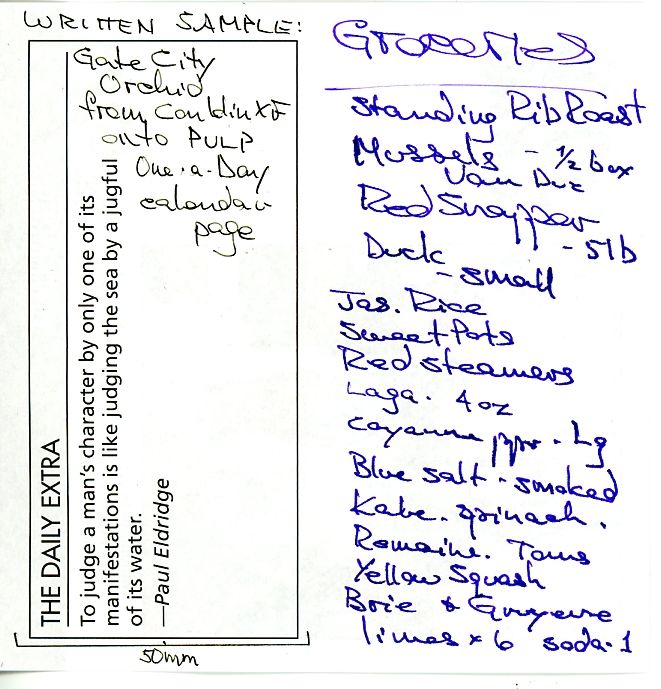 WRITTEN SAMPLE:
Gate City
Orchid
from Conklin XF
onto PULP
One-a-Day
calendar
page
THE DAILY EXTRA
To judge a man's character by only one of its
manifestations is like judging the sea by a jugful
of its water.
—Paul Eldridge
50mm
Groceries
Standing Rib Roast
Mussels - 1/2 box
Red Snapper
- 5lb
Duck
- small
Jas. Rice
Sweet Pots
Red steamers
4 oz
cayenne ppr. Lg
Blue salt - smoked
Kale. spinach.
Romaine. Toms
Yellow Squash
Brie & Gruyere
limes x 6 soda-1